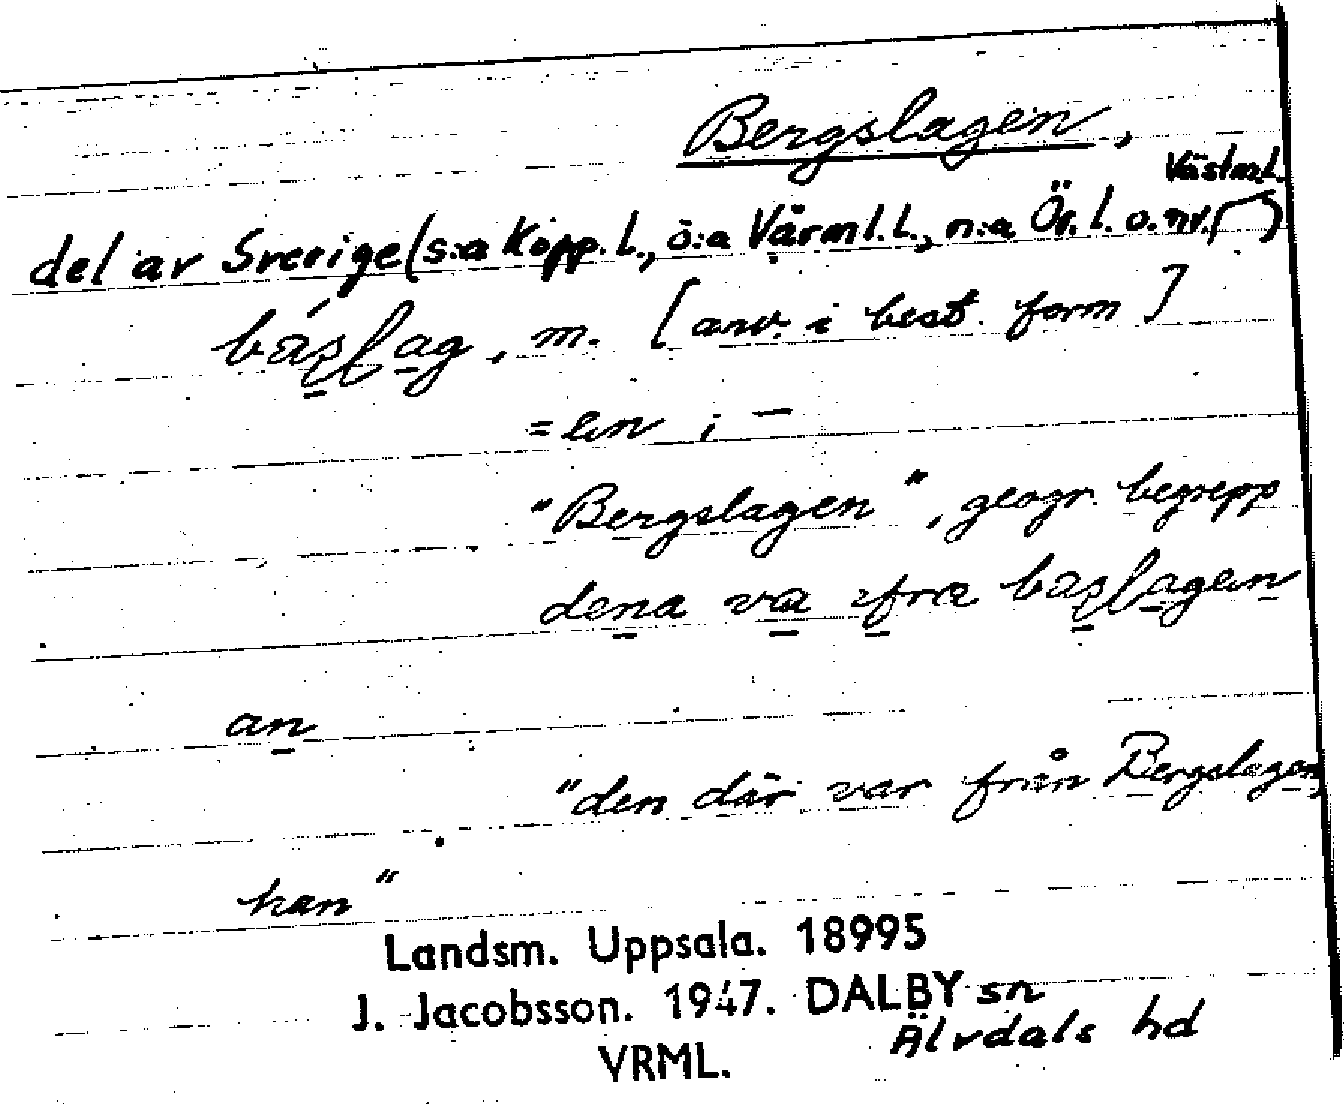 Bergslagen,
Västm.l.
del av Sverige (s:a Kopp. l., ö:a Värml. l., n:a Ör. l. o. nv. )
m. [anv. i best. form]
=en ; —
"Bergslagen", geogr. begrepp
dena va ifra
an
"den där var från Bergslagen,
han"
Landsm. Uppsala. 18995
J. Jacobsson. 1947. DALBY sn
Älvdals hd
VRML.